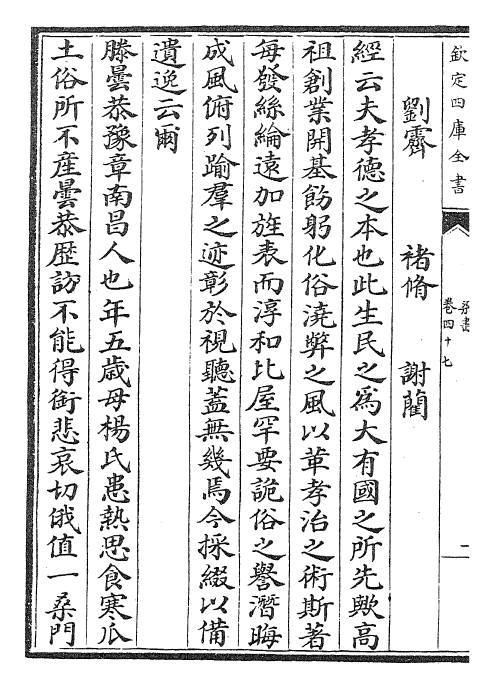 欽定四庫全書
梁書
卷四十七
二
劉霽 褚脩 謝藺
經云夫孝德之本也此生民之為大有國之所先歟高
祖創業開基飭躬化俗澆弊之風以革孝治之術斯著
每發絲綸遠加旌表而淳和比屋罕要詭俗之譽潛晦
成風俯列踰羣之迹彰於視聽蓋無幾焉今採綴以備
遺逸云爾
滕曇恭豫章南昌人也年五歲母楊氏患熱思食寒瓜
土俗所不産曇恭歴訪不能得銜悲哀切俄值一桑門